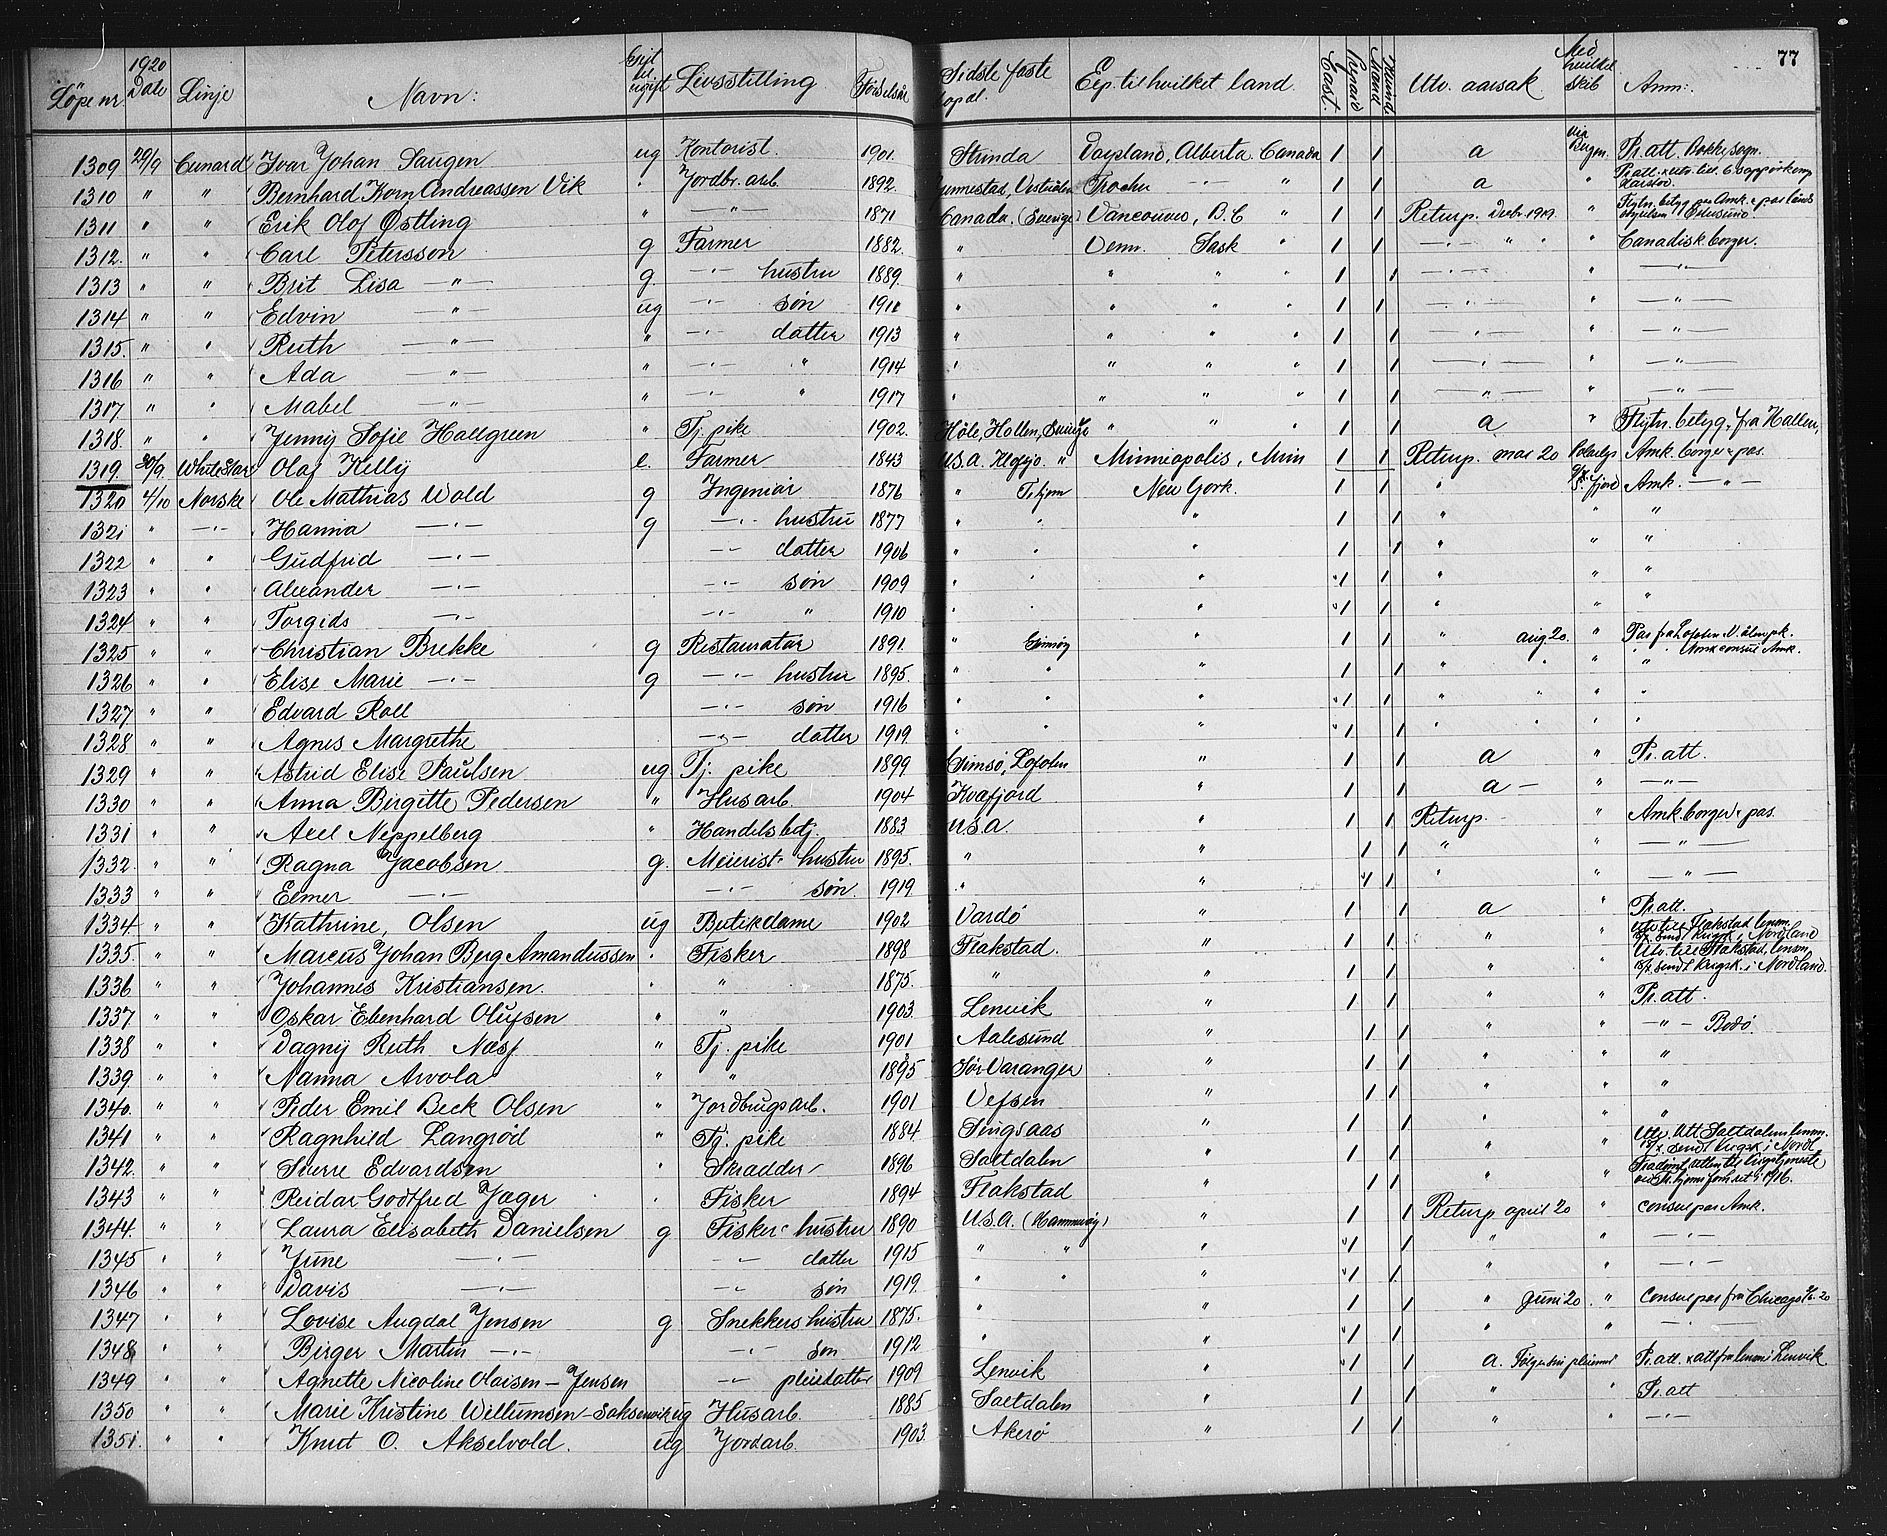 77
Løpe nr. 1920 Date Linje Navn: Gift el. ugift Livsstilling Fødselsaar Sidste faste opal. Exp. til hvilket land. By Mand Kvinde Utv. aarsak. Med hvilket skib Anm:
1309 29/9 Cunard Ivar Johan Saugen ug Kontorist. 1901. Strinda Daysland, Alberta Canada 1 1 a via Bergen Pr. att. Bakke sogn.
1310 " " Bernhard Korn Andreassen Vik " Jordbr. arb. 1892. Trochu —"— " 1 1 a "
1311 " " Erik Olof Østling " —"— 1871 Canada. (Sverige) Vancouver, B.C " 1 1 Returp. Decbr. 1919. " Flytn. betyg
1312. " " Carl Petersson g Farmer 1882. " Sask " 1 1 —"— " " " Canadisk borger.
1313 " " Brit Lisa —"— g. —"— hustru 1889. " " " " 1 1 —"— " —"—
1314 " " Edvin —"— ug —"— søn 1911 " " " " 1 1 —"— " —"—
1315. " " Ruth —"— " —"— datter 1913 " " " " 1 1 —"— " —"—
1316 " " Ada —"— " —"— " 1914 " " " " 1 1 —"— " —"—
1317 " " Mabel —"— " —"— " 1917 " " " " 1 1 —"— " —"—
1318. " " Jenny Sofie Hallgreen " Tj. pike 1902. Hallen, Sverige " " " 1 1 a " Flytn. betyg. fra Hallen,
1319. 30/9 White Star Olaf Kelly e. Farmer 1843 U.S.A. " Minniapolis, Minn 1 1 Returp. mai 20 Amk. borger pas.
1320 4/10 Norske Ole Mathias Wold g Ingeniør 1876 " New York. 1 1 " Amk. —"—
1321 " —"— Hanna —"— g —"— hustru 1877 " " " 1 1 " " "
1322 " " Gudfrid —"— —"— datter 1906 " " " 1 1 " " "
1323 " " Alexander —"— —"— søn 1909 " " " 1 1 " " "
1324 " " Torgids —"— —"— " 1910 " " " 1 1 " " "
1325 " " Christian Brekke g Restauratør 1891. " Gimsøy " 1 1 " aug 20. " Pas fra Lofoten
1326 " " Elise Marie —"— g —"— hustru 1895. " " " 1 1 " " " "
1327 " " Edvard Roll —"— søn 1916 " " " 1 1 " " " "
1328 " " Agnes Margrethe —"— datter 1919 " " " 1 1 " " " "
1329 " " Astrid Elise Paulsen ug Tj. pike 1899 Gimsø, Lofoten " 1 1 a " Pr. att.
1330 " " Anna Birgitte Pedersen " Husarb. 1904 Kvæfjord " 1 1 a — " —"—
1331 " " Axel Neppelberg " Handelsbetj. 1883 U.S.A. " 1 1 Returp. — " Amk. borger pas.
1332. " " Ragna Jacobsen g. Meierist. hustru 1895. " " 1 1 " " —"—
1333 " " Elmer —"— —"— søn. 1919 " " 1 1 " " —"—
1334 " " Kathrine, Olsen ug Butikdame 1902 Vardø " 1 1 a " Pr. att.
1335. " " Marcus Johan Berg Amandussen " Fisker 1898 Flakstad. " 1 1 " " Utv. till. Flakstad lensm. sendt krigsk. i Nordland
1336 " " Johannes Kristiansen. " " 1875. " " 1 1 " " Utv. till Flakstad, lensm. sendt krigsk. i Nordland.
1337. " " Oskar Ebenhard Olufsen " " 1903. Lenvik " 1 1 " " Pr. att.
1338 " " Dagny Ruth Næss " Tj. pike 1901 Aalesund " 1 1 " " —"— Bodø
1339. " " Nanna Arvola " " 1895 Sør-Varanger " 1 1 " " "
1340. " " Peder Emil Beck Olsen " Jordbrugsarb. 1901 Vefsen " 1 1 " " "
1341 " " Ragnhild Langrød " Tj. pike 1884 Singsaas " 1 1 " " "
1342. " " Sverre Edvardsen " Skrædder 1896 Saltdalen " 1 1 " " Utv. till Saltdalens lensm. sendt krigsk. i Nordl.
1343 " " Reidar Godtfred Jæger " Fisker 1894 Flakstad " 1 1 " " 1916.
1344. " " Laura Elisabeth Danielsen g Fisker hustru 1890 U.S.A. " 1 1 Returp april 20 " consul pas Amk.
1345 " " June —"— —"— datter 1915 " " " 1 1 " " —"—
1346 " " Davis —"— —"— søn 1919. " " " 1 1 " " —"—
1347 " " Lovise Augdal Jensen g Snekkers hustru 1875. " " 1 1 " Juni 20. " consul pas fra Chicago 20
1348 " " Birger Martin —"— —"— søn 1912 " " 1 1 " " —"—
1349 " " Agnette Nicoline Olaisen — Jensen —"— pleiedatter 1909 Lenvik " 1 1 a. Følger sin pleiemor Pr. att. att fra lensm i Lenvik
1350 " " Marie Kristine Willumsen — Saksenvik ug Husarb. 1885 Saltdalen " 1 1 " " Pr. att
1351. " " Knut O. Akselvold. ug Jordarb. 1903 Akerø " 1 1 " " —"—